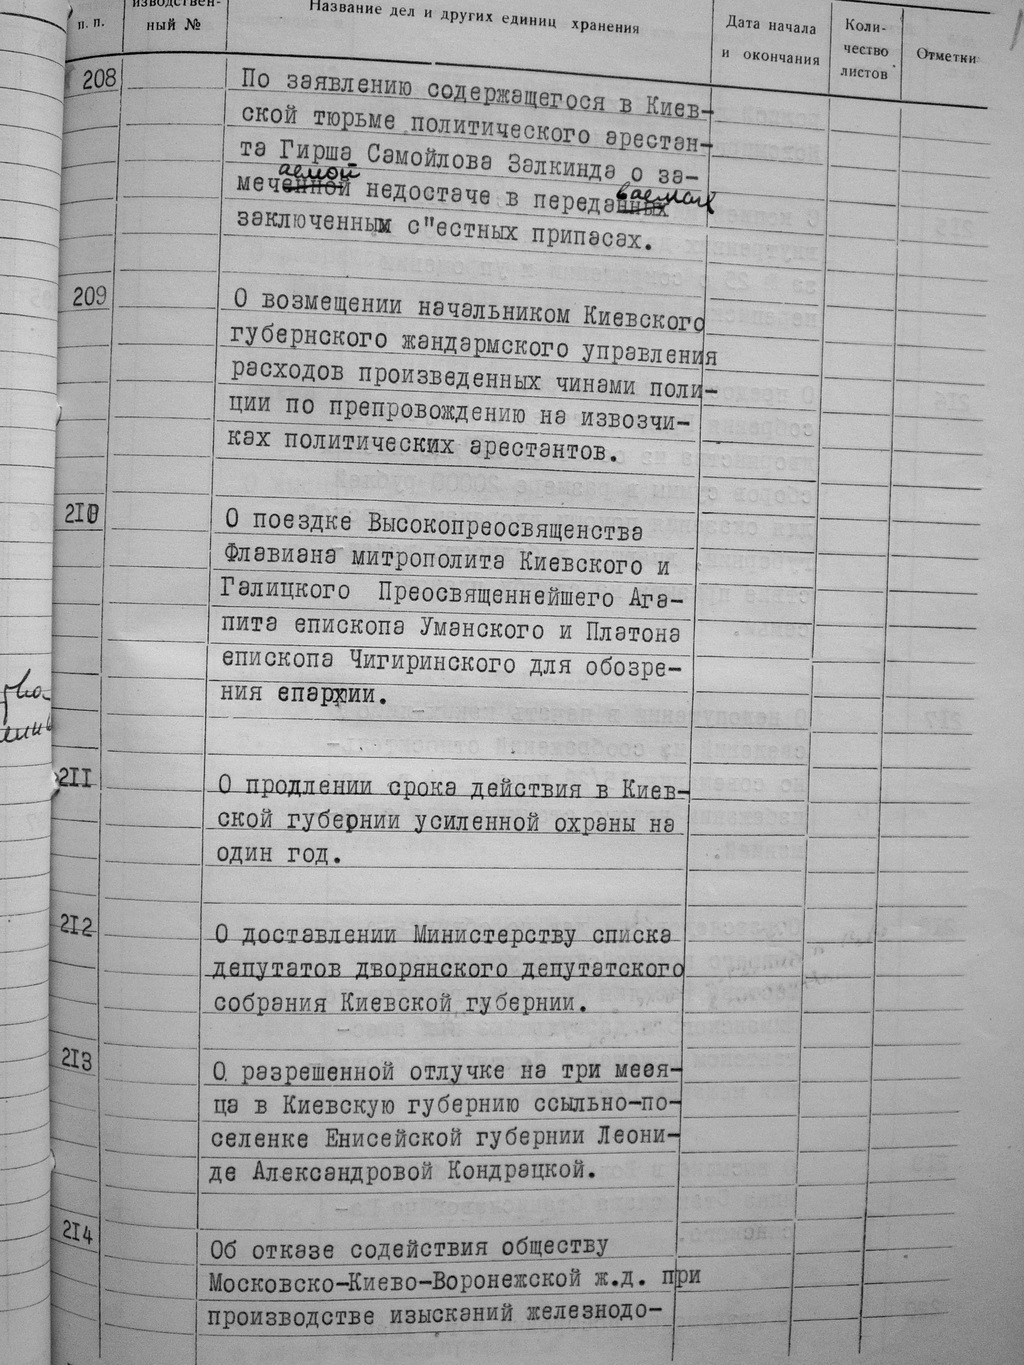 п. п.
изводствен-
ный №
Название дел и других единиц хранения
Дата начала
и окончания
Коли-
чество
листов
Отметки
208
По заявлению содержащегося в Киев-
ской тюрьме политического арестан-
та Гирша Самойлова Залкинда о за-
аемой
ваемых
меченной недостаче в переданных
заключенным с"естных припасах.
209
О возмещении начальником Киевского
губернского жандармского управления
расходов произведенных чинами поли-
ции по препровождению на извозчи-
ках политических арестантов.
210
О поездке Высокопреосвященства
Флавиана митрополита Киевского и
Галицкого Преосвященнейшего Ага-
пита епископа Уманского и Платона
епископа Чигиринского для обозре-
ния епархии.
211
О продлении срока действия в Киев-
ской губернии усиленной охраны на
один год.
212
О доставлении Министерству списка
депутатов дворянского депутатского
собрания Киевской губернии.
213
О разрешенной отлучке на три меся-
ца в Киевскую губернию ссыльно-по-
селенке Енисейской губернии Леони-
де Александровой Кондрацкой.
214
Об отказе содействия обществу
Московско-Киево-Воронежской ж.д. при
производстве изысканий железнодо-